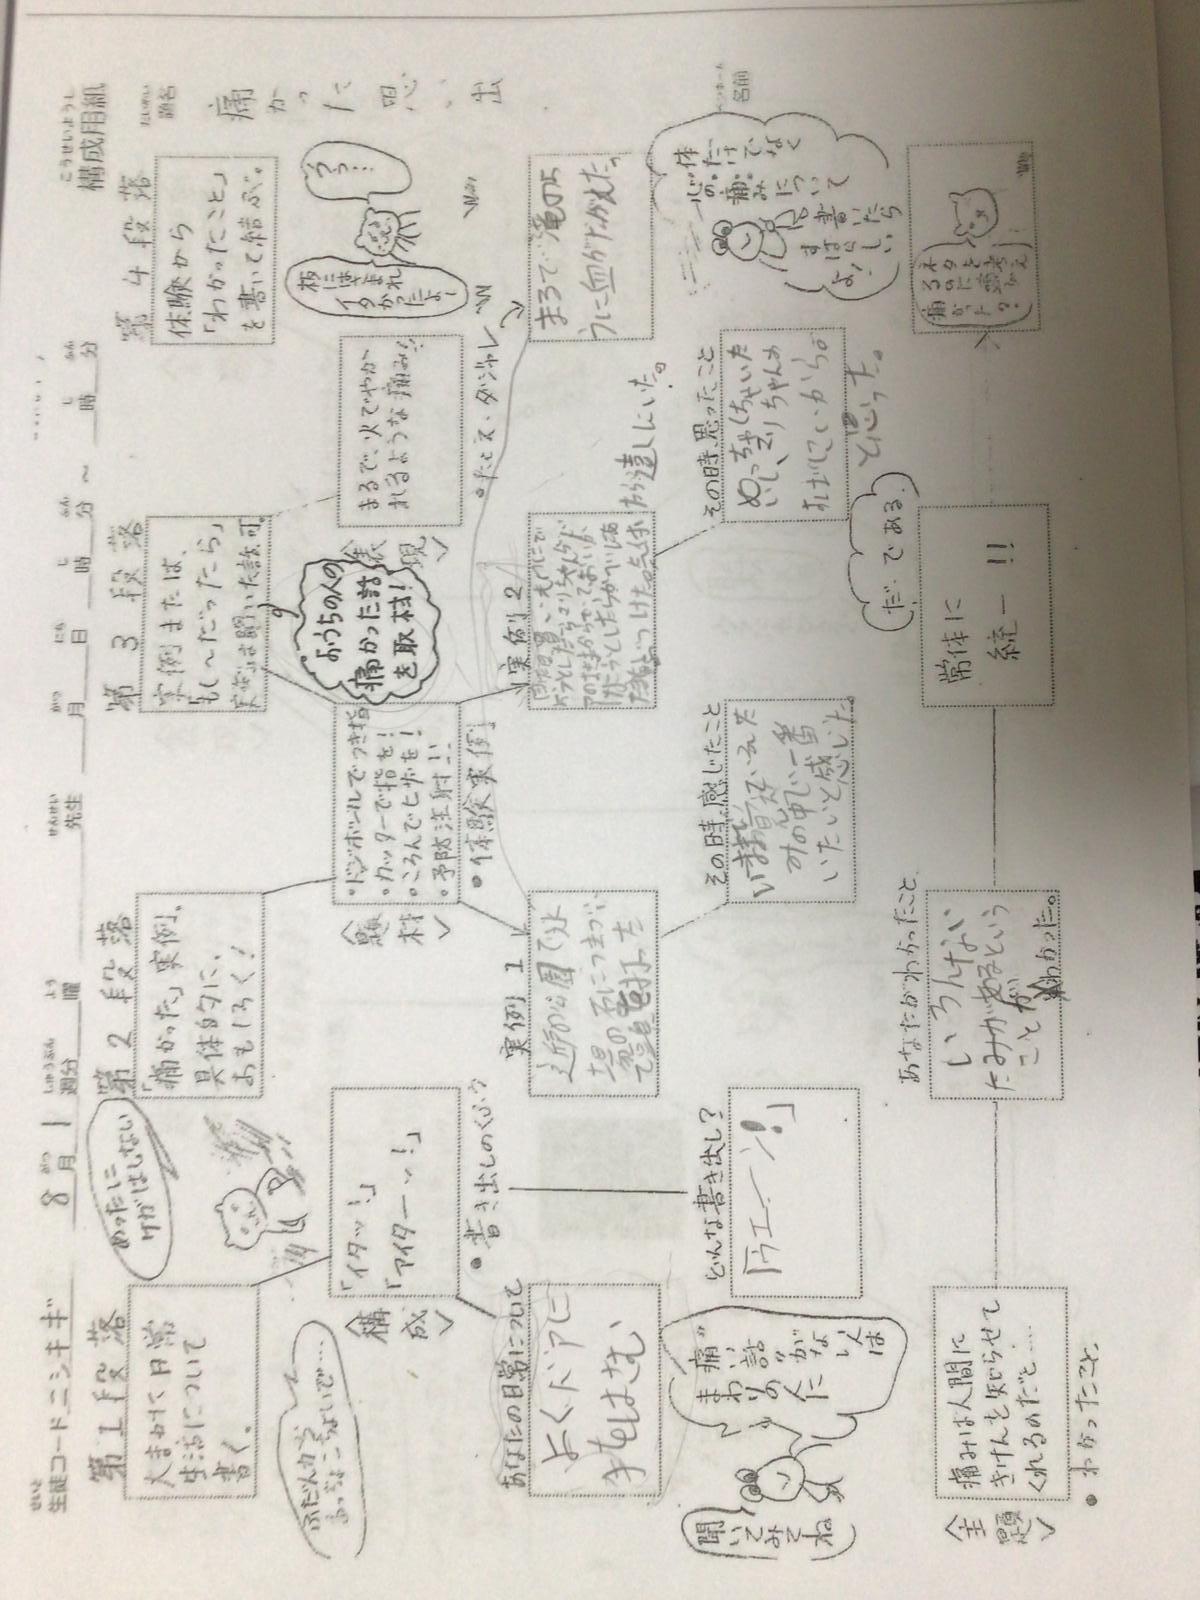 こうせいようし
構成用紙
だいめい
題名
痛かった思い出
ペンネーム
名前
せいと
生徒コード ニシキギ
8月 1週分
がつ
しゅうぶん
よう
曜
せんせい
先生
がつ
月
にち
日
じ
時
ふん
分
～
じ
時
ふん
分
第1段落
大まかに日常
生活について
書く。
第2段落
「痛かった」実例。
具体的に、
おもしろく！
第3段落
実例または、
「もし～だったら」
実例は聞いた話可。
第4段落
体験から
「わかったこと」
を書いて結ぶ。
めったに
ケガはしない
ふだんから
〈構成〉
「イタッ！」
「アイターッ！」
•書き出しのくふう
〈題材〉
•ドッジボールでつき指
•カッターで指を！
•ころんでヒザを！
•予防注射！！
•体験実例
おうちの人の
痛かった話
を取材！
〈表現〉
まるで、火でやか
れるような痛み！！
•たとえ・ダジャレ
うっ…
板にはさまれ
イタかったよ！
あなたの日常について
よくドアに
手をはさむ
実例1
近所の公園で水
実例2
まるで滝のよ
うに血がながれた。
聞いてみてね
“痛い話”がない人は
まわりの人に
どんな書き出し？
「ウエーン！」
その時、感じたこと
みの中で一番
いたいと感じた。
その時、思ったこと
と思った。
体だけでなく
心の“痛み”について
を書いたら
すばらしいよ！
だ・である。
〈主題〉
痛みは人間に
きけんを知らせて
くれるのだと…
•わかったこと
あなたがわかったこと
いろんない
たみがあるという
ことがわかった。
常体に
統一！！
ネタを考え
るのに頭が
痛かった？